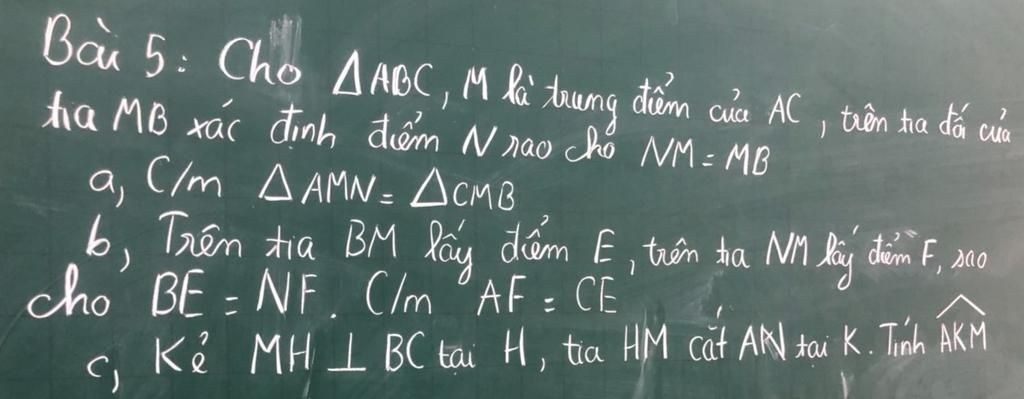 Bài 5: Cho △ABC, M là trung điểm của AC, trên tia đối của
tia MB xác định điểm N sao cho NM = MB
a, C/m △AMN = △CMB
b, Trên tia BM lấy điểm E, trên tia NM lấy điểm F, sao
cho BE = NF. C/m AF = CE
c, Kẻ MH ⊥ BC tại H, tia HM cắt AN tại K. Tính \widehat{AKM}